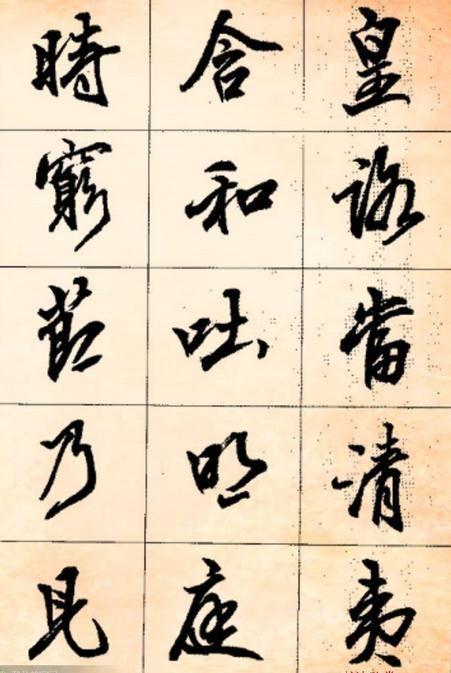 皇路當清夷
含和吐明庭
時窮節乃見